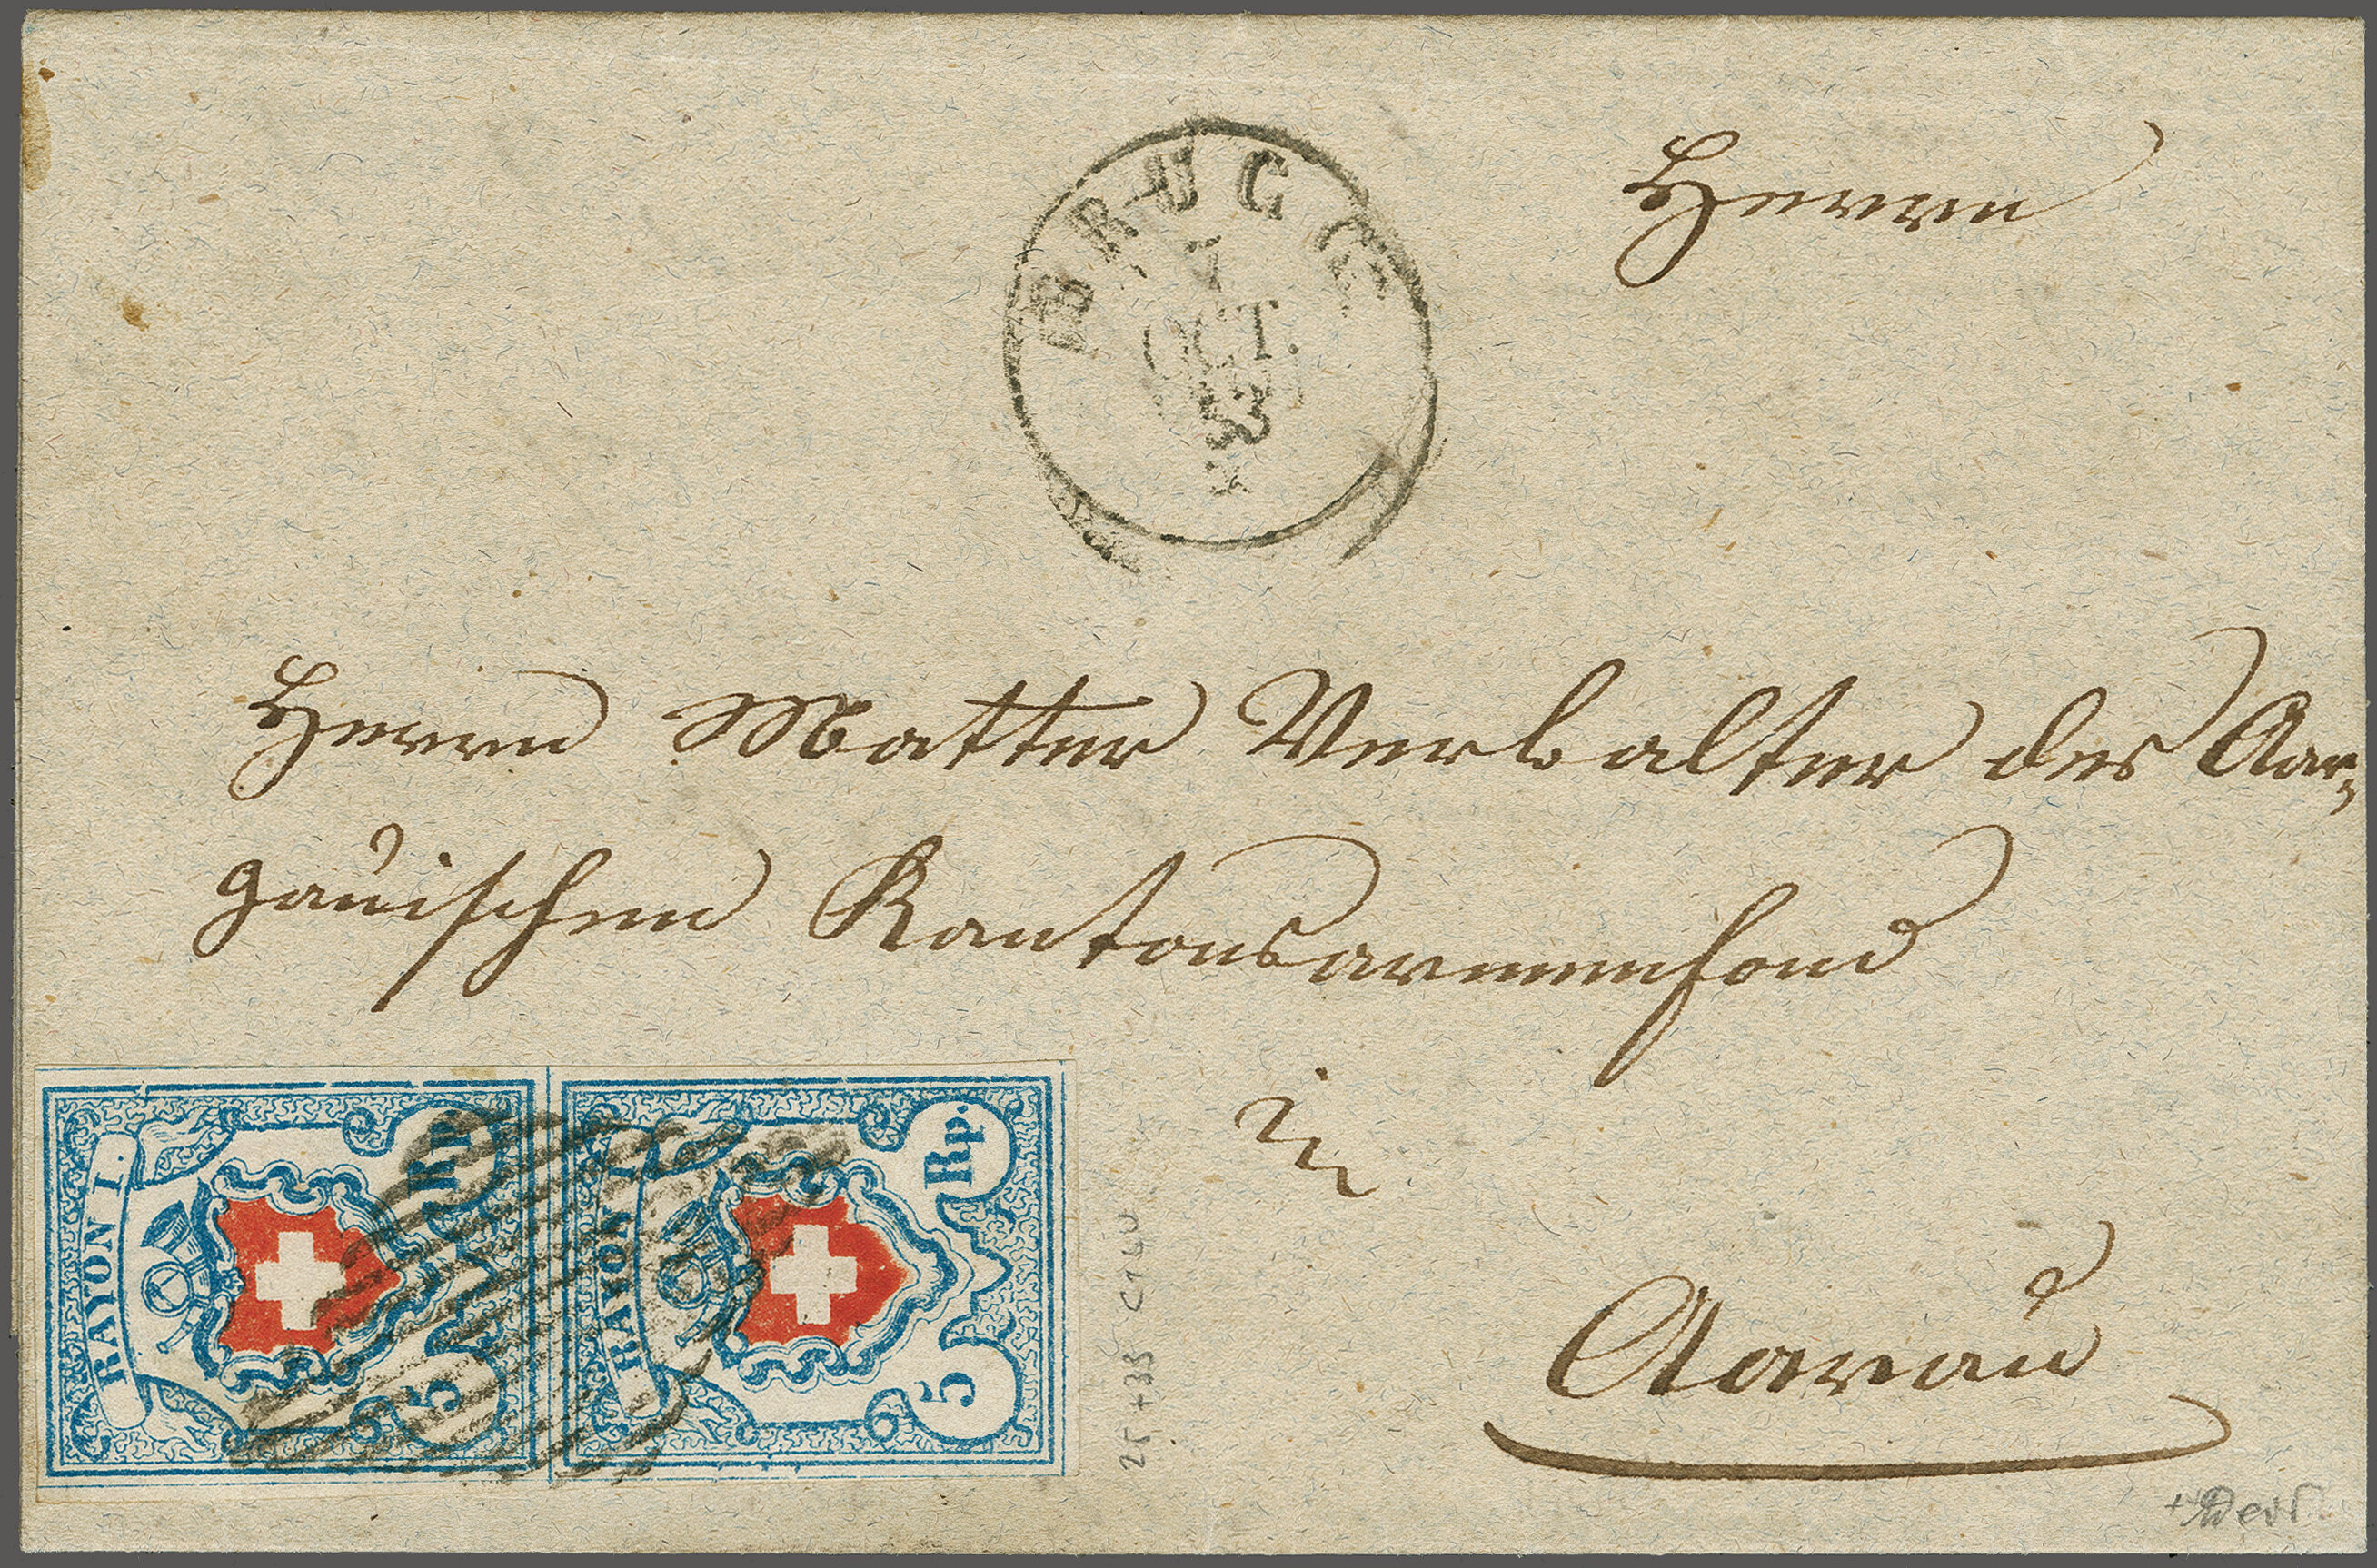 BRUGG
7
OCT.
53
Herrn
Herrn Matter Verwalter des Aar-
gauischen Kantonsarmenfond
in
Aarau
RAYON I.
5 Rp.
RAYON I.
5 Rp.